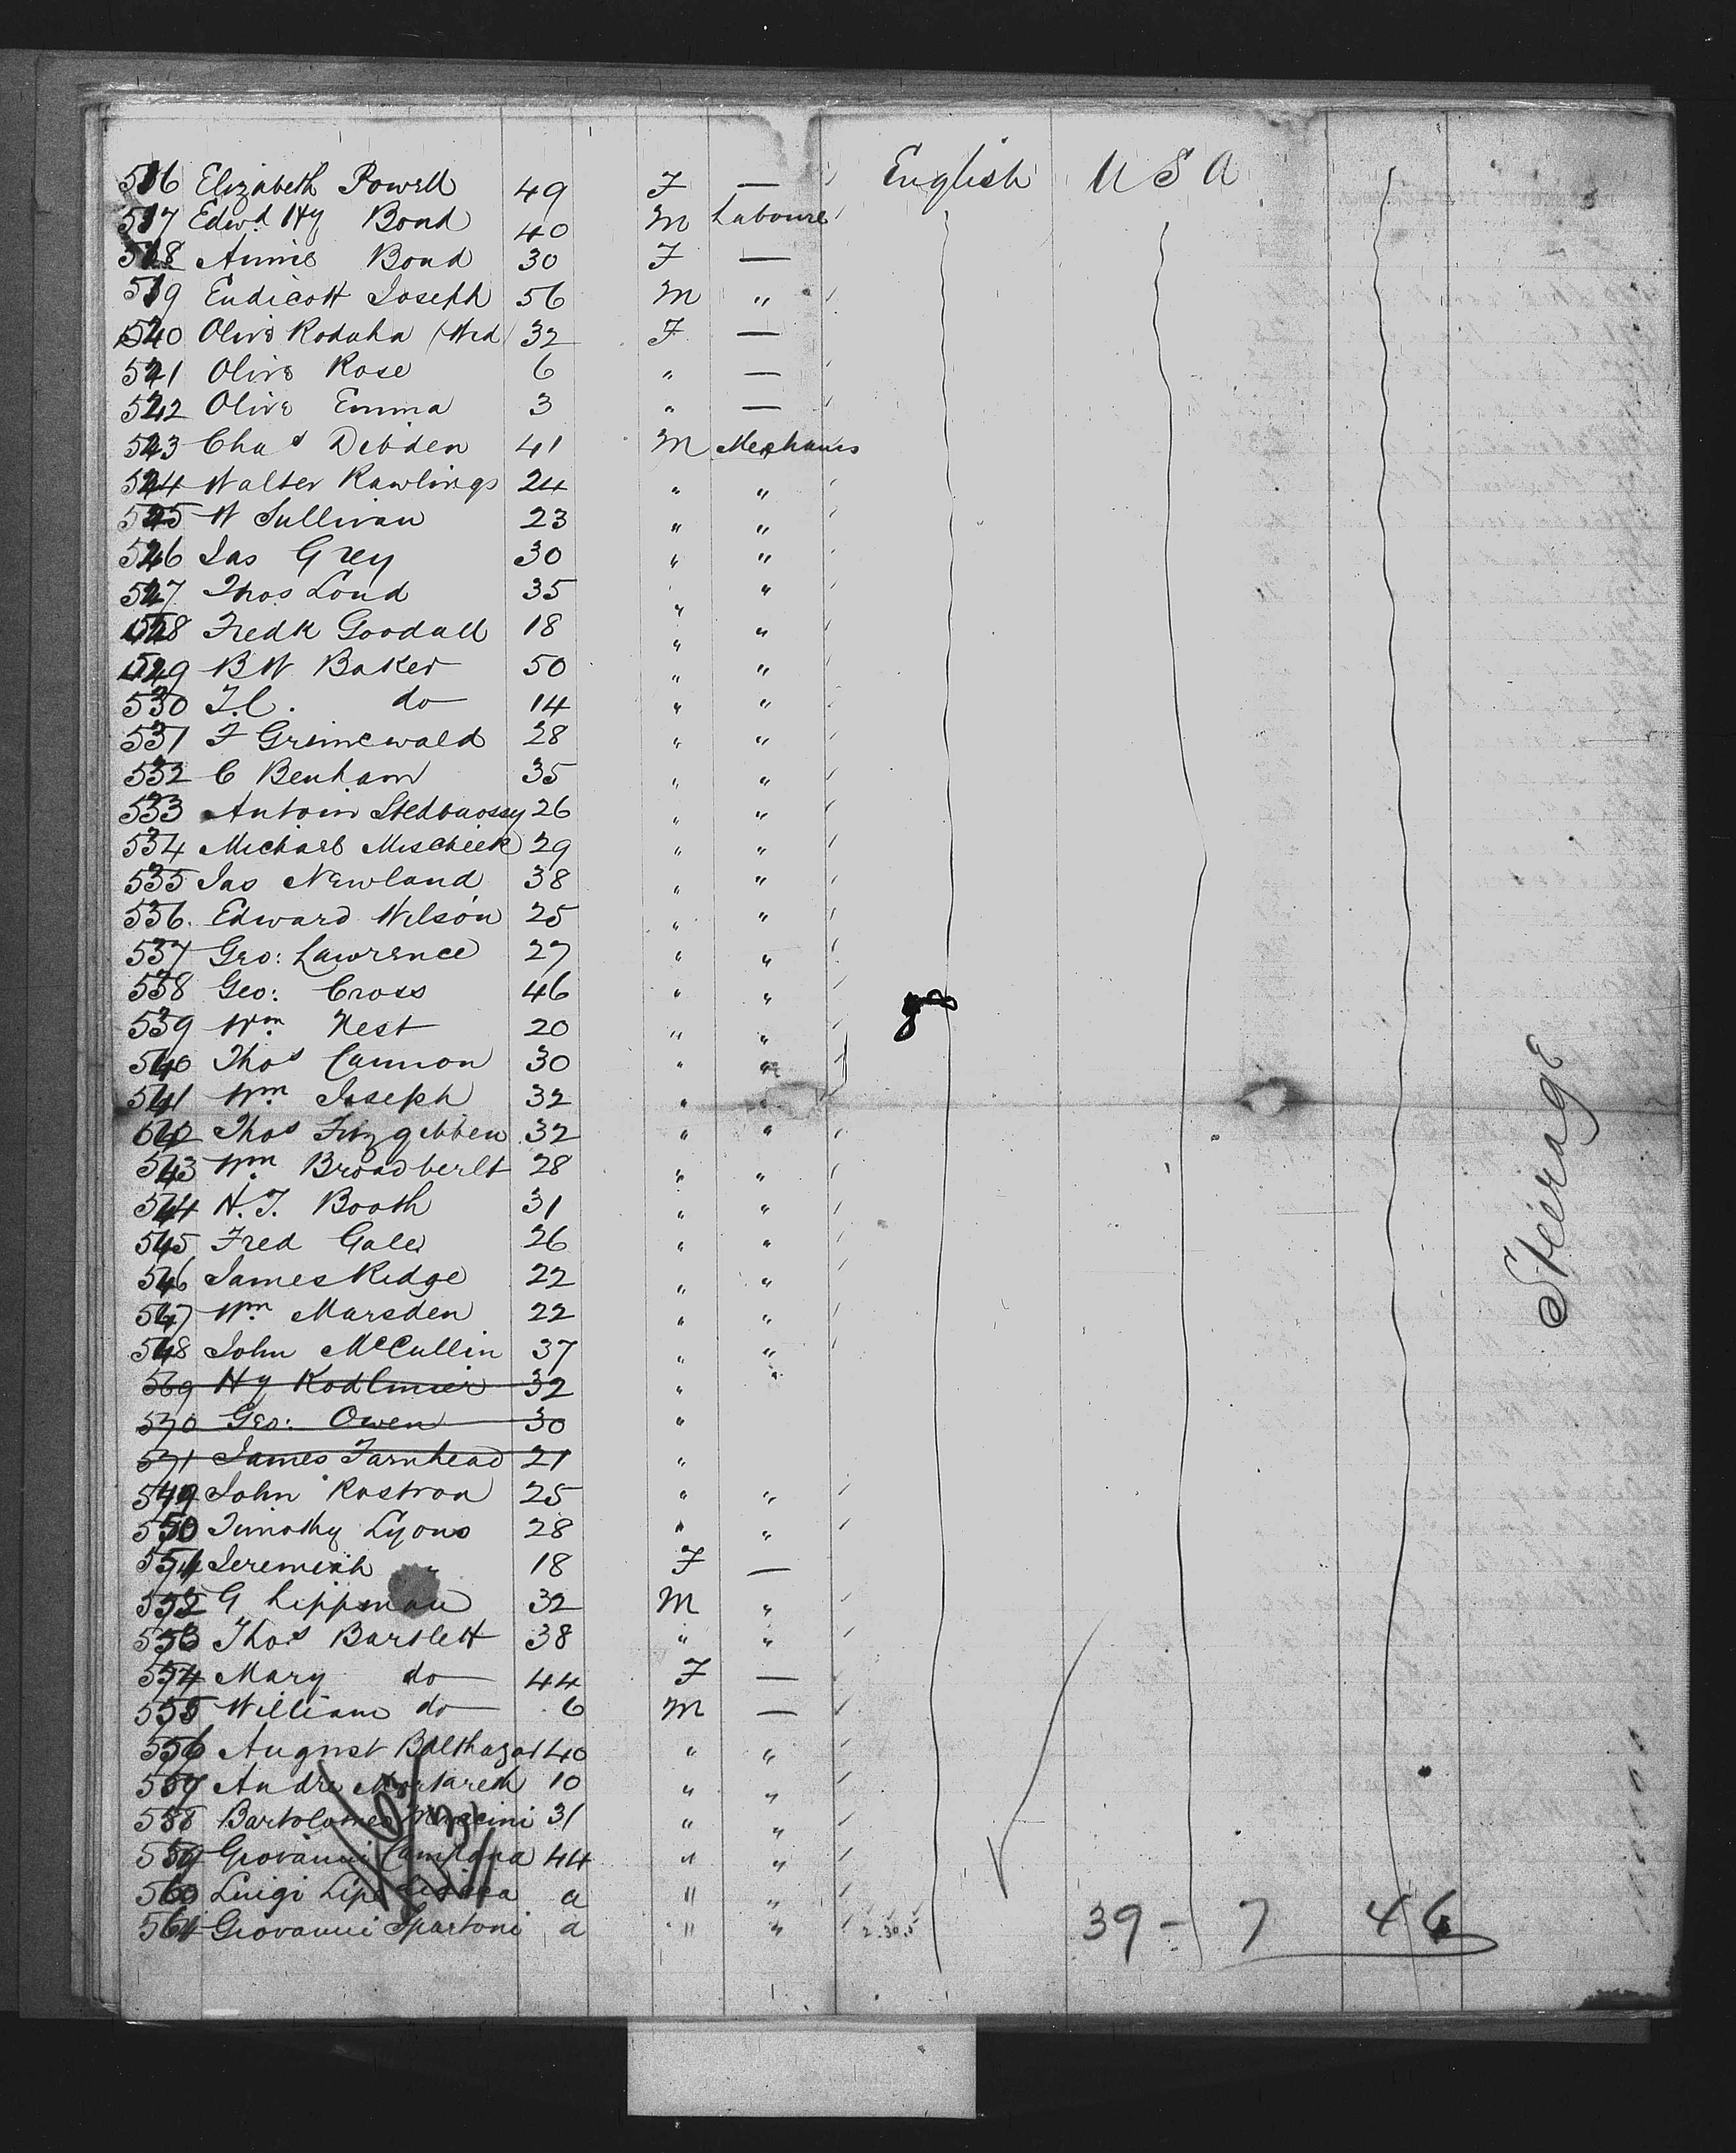 516 Elizabeth Powell 49 F — English U S A
517 Edwd Hy Bond 40 M Laboure
518 Annie Bond 30 F —
519 Endicott Joseph 56 M "
520 Olive (Wid) 32 F —
521 Olive Rose 6 " —
522 Olive Emma 3 " —
523 Chas Dibden 41 M Mechanis
524 Walter Rawlings 24 " "
525 W Sullivan 23 " "
526 Jas Grey 30 " "
527 Thos Lond 35 " "
528 Fredk Goodall 18 " "
529 B W Baker 50 " "
530 J.C. do 14 " "
531 F Grunewald 28 " "
532 C Benham 35 " "
533 Antoin 26 " "
534 Michael Mischiek 29 " "
535 Jas Newland 38 " "
536. Edward Wilson 25 " "
537 Geo: Lawrence 27 " "
538 Geo: Cross 46 " "
539 Wm West 20 " "
540 Thos Cannon 30 " "
541 Wm Joseph 32 " "
542 Thos Fitzgibben 32 " "
543 Wm Broadberlt 28 " "
544 H. J. Booth 31 " "
545 Fred Gale 26 " "
546 James Ridge 22 " "
547 Wm Marsden 22 " "
548 John McCullin 37 " "
569 Hy 32 "
570 Geo: Owen 30 "
571 James Farnhead 21 "
549 John Rostron 25 " "
550 Timothy Lyons 28 " "
551 Jeremiah " 18 F —
552 G Lippman 32 M "
553 Thos Bartlett 38 " "
554 Mary do 44 F —
555 William do 6 M —
556 August Balthazar 40 " "
557 Andre 10 " "
558 Bartolomeo 31 " "
559 Giovanni Campana 44 " "
560 Luigi a " "
561 Giovanni Spartoni a " " 39 - 7 46
Steerage